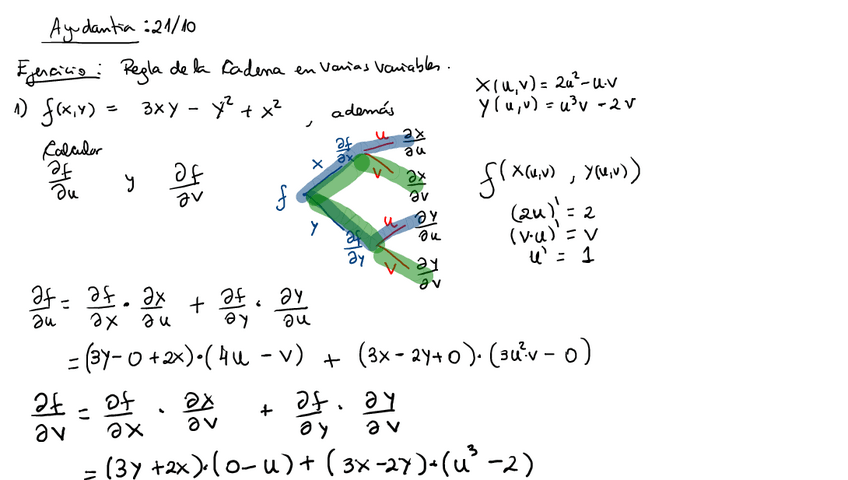 Ayudantia : 21/10
Ejercicio : Regla de la Cadena en Varias Variables.
1) f(x,y) = 3xy - y² + x² , además
x(u,v) = 2u² - u·v
y(u,v) = u³v - 2v
Calcular
∂f/∂u y ∂f/∂v
f x ∂f/∂x u ∂x/∂u
v ∂x/∂v
y ∂f/∂y u ∂y/∂u
v ∂y/∂v
f(x(u,v) , y(u,v))
(2u)' = 2
(v·u)' = v
u' = 1
∂f/∂u = ∂f/∂x · ∂x/∂u + ∂f/∂y · ∂y/∂u
= (3y - 0 + 2x)·(4u - v) + (3x - 2y + 0)·(3u²·v - 0)
∂f/∂v = ∂f/∂x · ∂x/∂v + ∂f/∂y · ∂y/∂v
= (3y + 2x)·(0 - u) + (3x - 2y)·(u³ - 2)